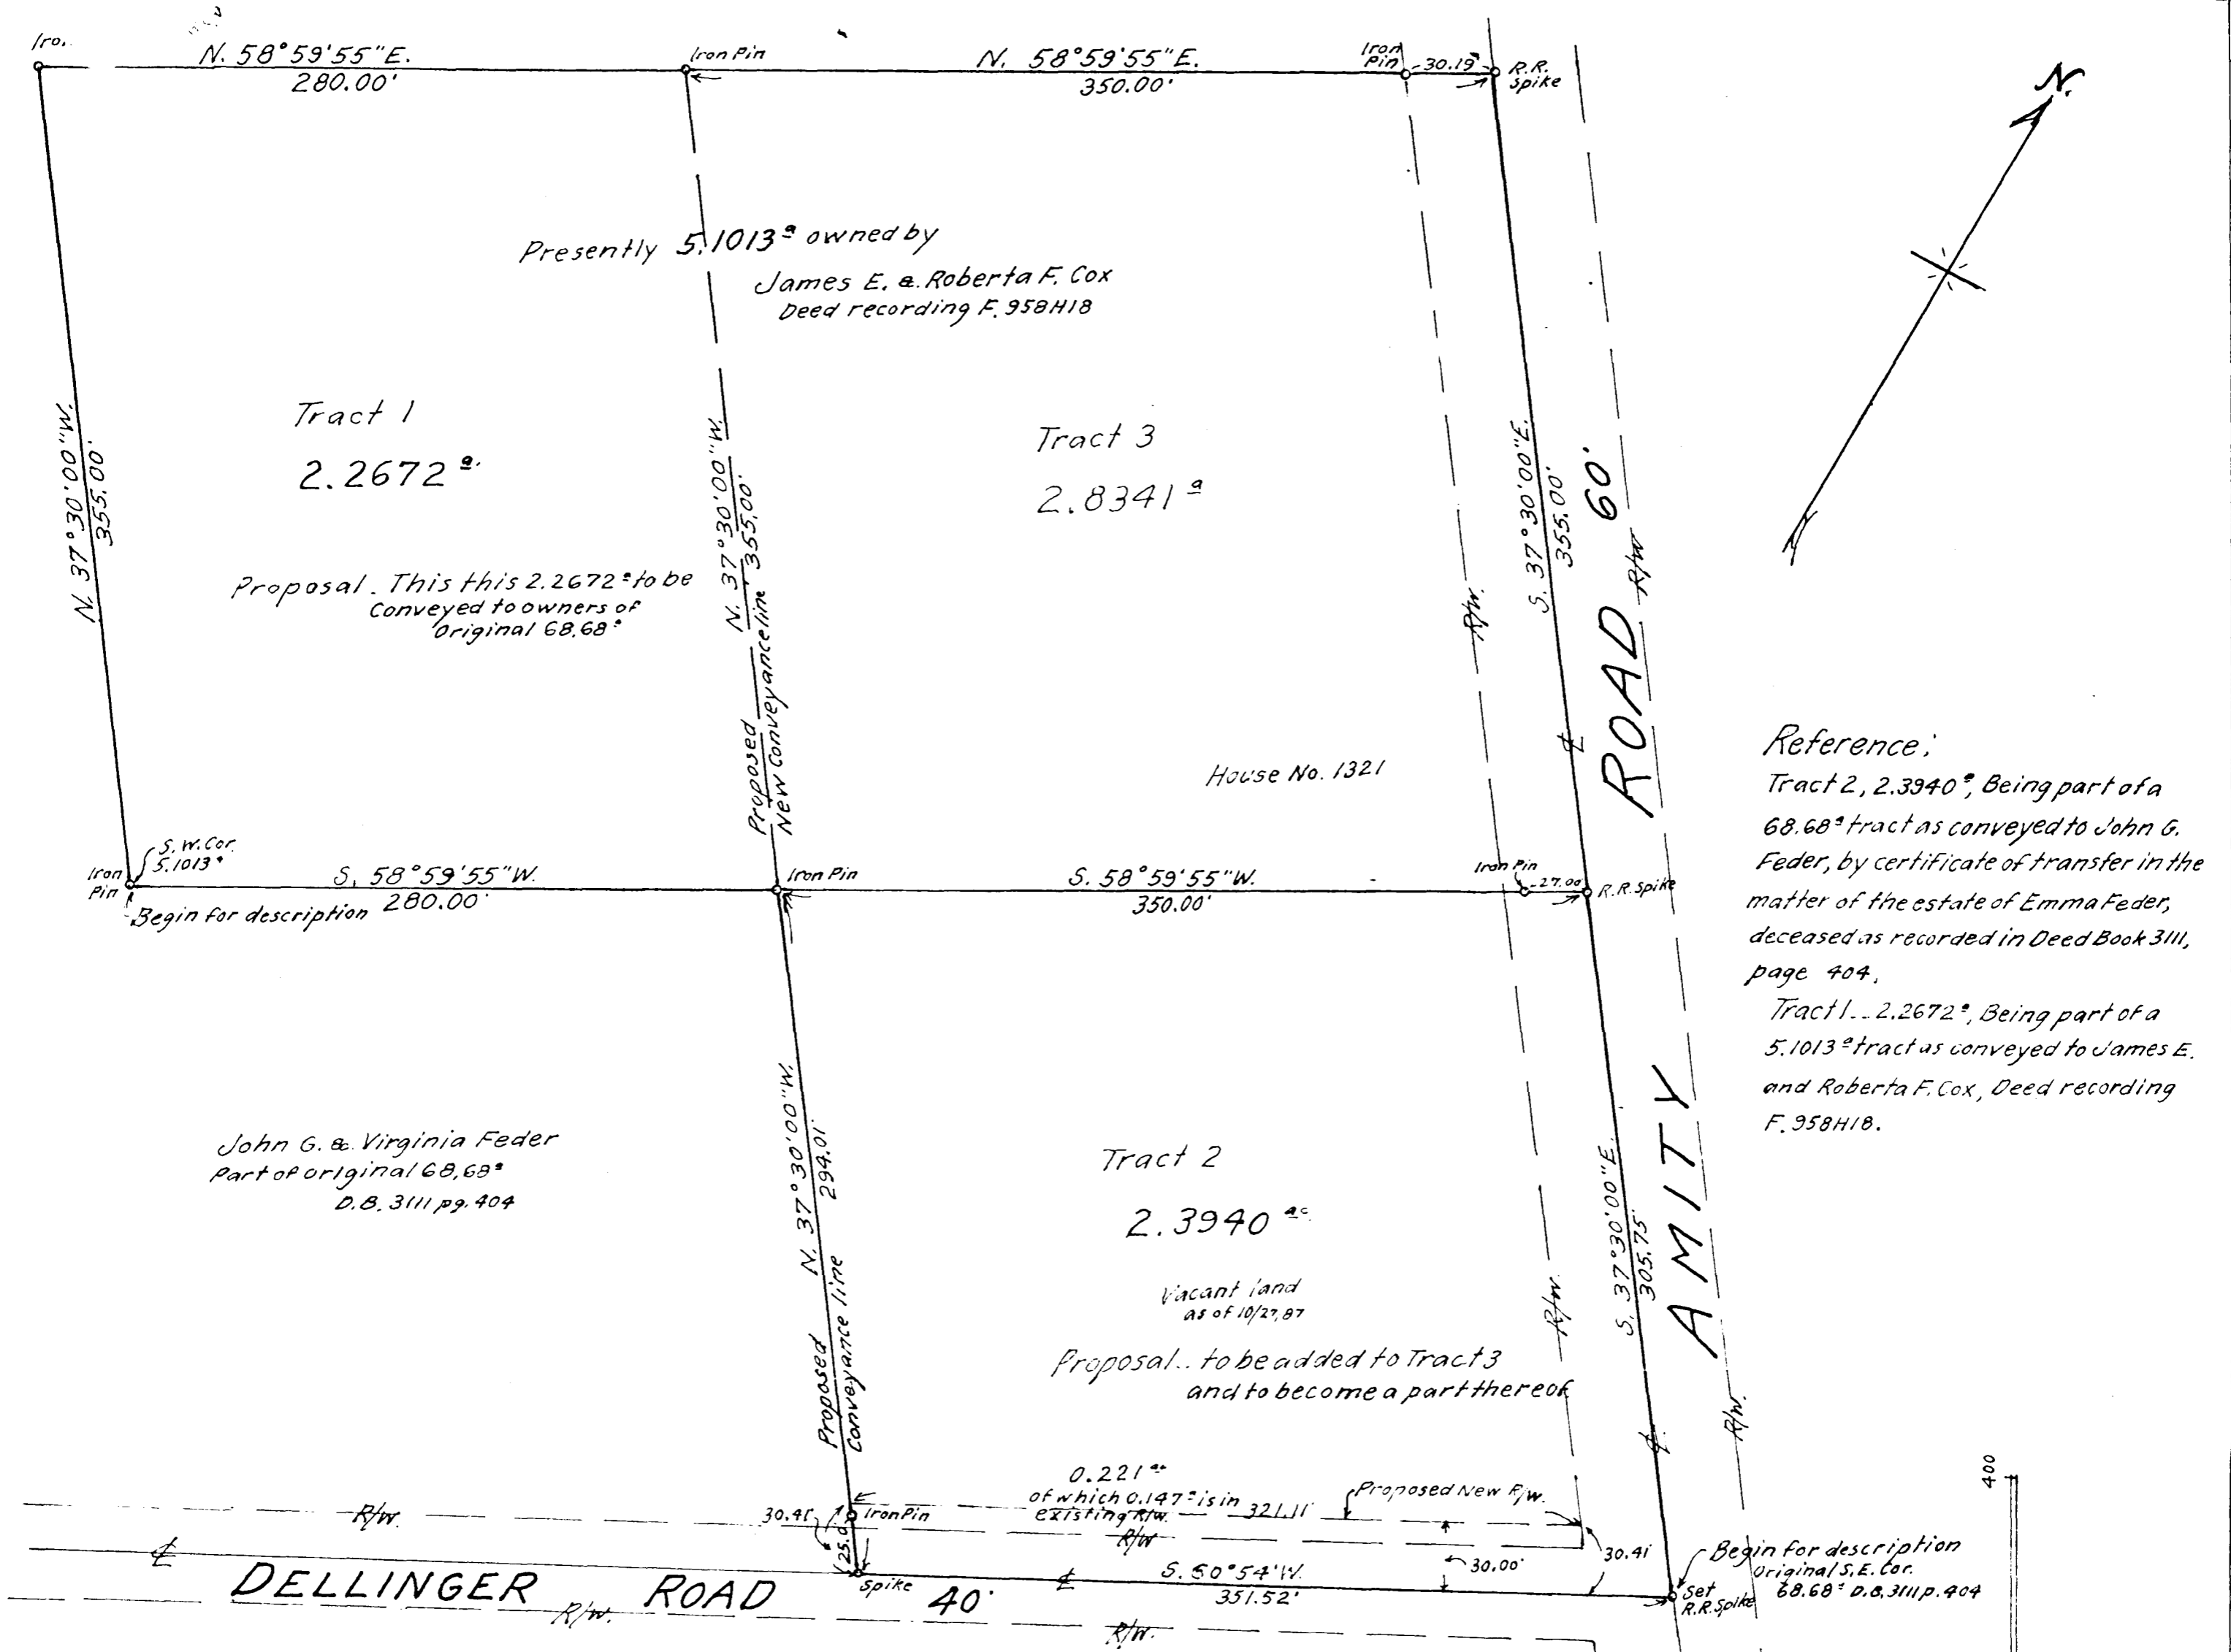 Iro.
N. 58°59'55"E.
280.00'
Iron Pin
N. 58°59'55"E.
350.00'
Iron
Pin
30.19'
R.R.
Spike
N.
Presently 5.1013ª owned by
James E. & Roberta F. Cox
Deed recording F. 958H18
Tract 1
2.2672 ª.
Tract 3
2.8341 ª
N. 37°30'.00"W.
355.00'
Proposal. This this 2.2672ª to be
Conveyed to owners of
Original 68.68ª
Proposed N. 37°30'.00"W.
New Conveyance line 355.00'
S. 37°30'.00"E.
355.00'
R/w.
AMITY ROAD 60'
R/w
House No. 1321
℄
S.W. Cor.
5.1013ª
Iron
Pin
Begin for description
S. 58°59'55"W.
280.00'
Iron Pin
S. 58°59'55"W.
350.00'
Iron Pin
27.00'
R.R. Spike
Reference;
Tract 2, 2.3940ª, Being part of a
68.68ª tract as conveyed to John G.
Feder, by certificate of transfer in the
matter of the estate of Emma Feder,
deceased as recorded in Deed Book 3111,
page 404,
Tract 1... 2.2672ª, Being part of a
5.1013ª tract as conveyed to James E.
and Roberta F. Cox, Deed recording
F. 958H18.
John G. & Virginia Feder
Part of original 68.68ª
D.B. 3111 pg. 404
Proposed N. 37°30'00"W.
Conveyance line 294.01'
Tract 2
2.3940 ac.
Vacant land
as of 10/27,87
Proposal.. to be added to Tract 3
and to become a part thereof
S. 37°30'.00"E.
305.75'
R/w.
℄
R/w.
0.221ac
of which 0.147ª is in
existing R/w.
321.11'
Proposed New R/w.
R/w
R/w.
30.41'
Iron Pin
25.0
30.00'
30.41'
℄
DELLINGER ROAD 40'
R/w.
Spike
℄
S. 60°54'W.
351.52'
R/w.
Set
R.R. Spike
Begin for description
Original S.E. Cor.
68.68ª D.B. 3111 p. 404
400